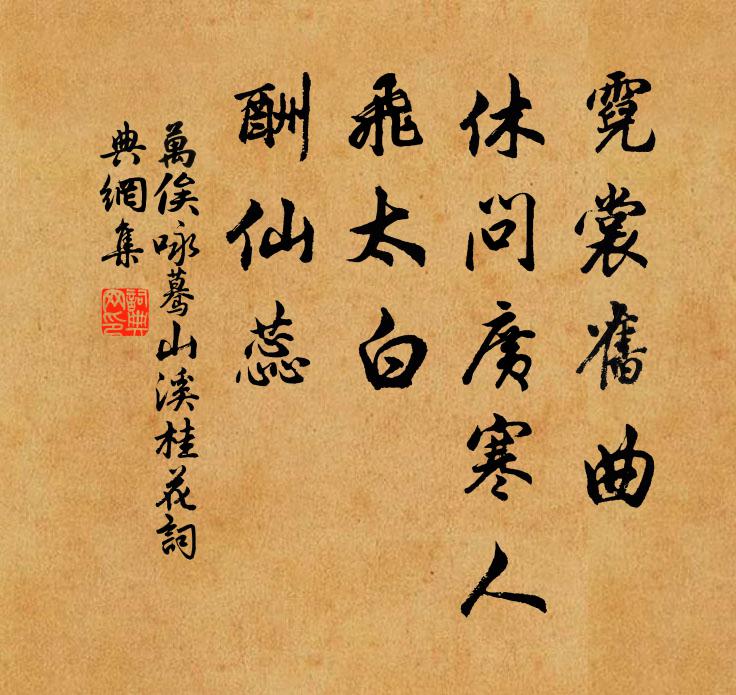 霓裳舊曲
休問廣寒人
飛太白
酬仙蕊
萬俟咏驀山溪桂花詞
典網集
詞典網印